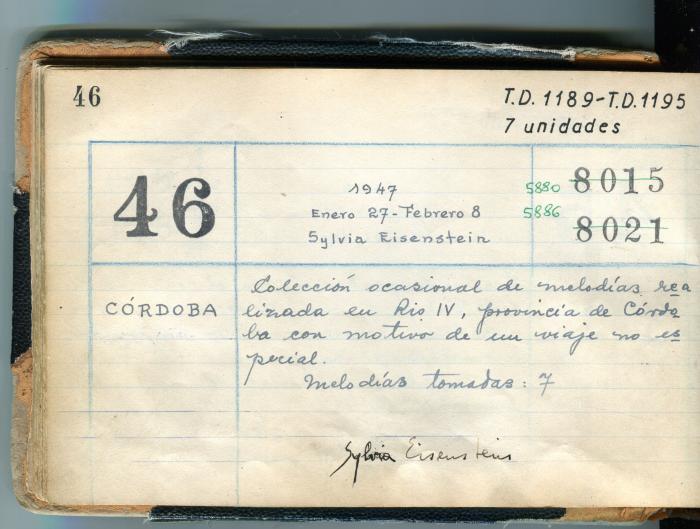 46
T.D. 1189-T.D. 1195
7 unidades
46
1947
Enero 27-Febrero 8
Sylvia Eisenstein
5880 8015
5886 8021
CÓRDOBA
Colección ocasional de melodías rea
lizada en Rio IV, provincia de Córdo
ba con motivo de un viaje no es
pecial.
Melodías tomadas: 7
Sylvia Eisenstein